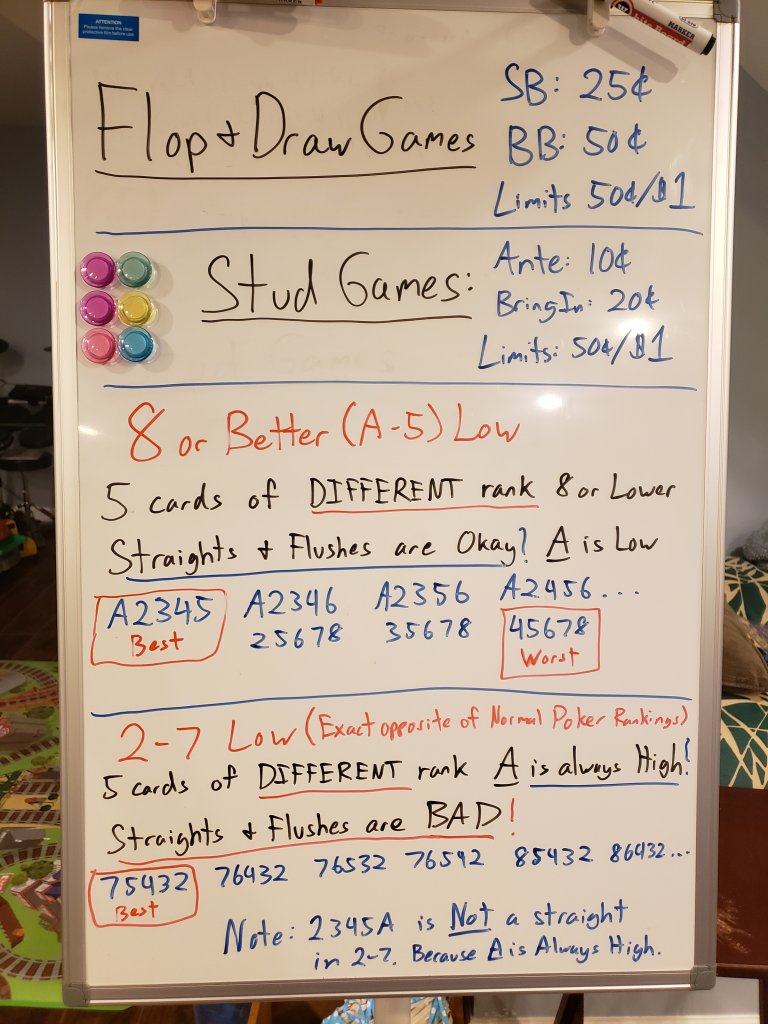 ATTENTION
Please remove the clear
protective film before use
MARKER
MARKER
Flop & Draw Games
SB: 25¢
BB: 50¢
Limits 50¢/$1
Stud Games:
Ante: 10¢
Bring In: 20¢
Limits: 50¢/$1
8 or Better (A-5) Low
5 cards of DIFFERENT rank 8 or Lower
Straights & Flushes are Okay! A is Low
A2345 A2346 A2356 A2456...
Best 25678 35678 45678
Worst
2-7 Low (Exact opposite of Normal Poker Rankings)
5 cards of DIFFERENT rank A is always High!
Straights & Flushes are BAD!
75432 76432 76532 76542 85432 86432...
Best
Note: 2345A is Not a straight
in 2-7. Because A is Always High.